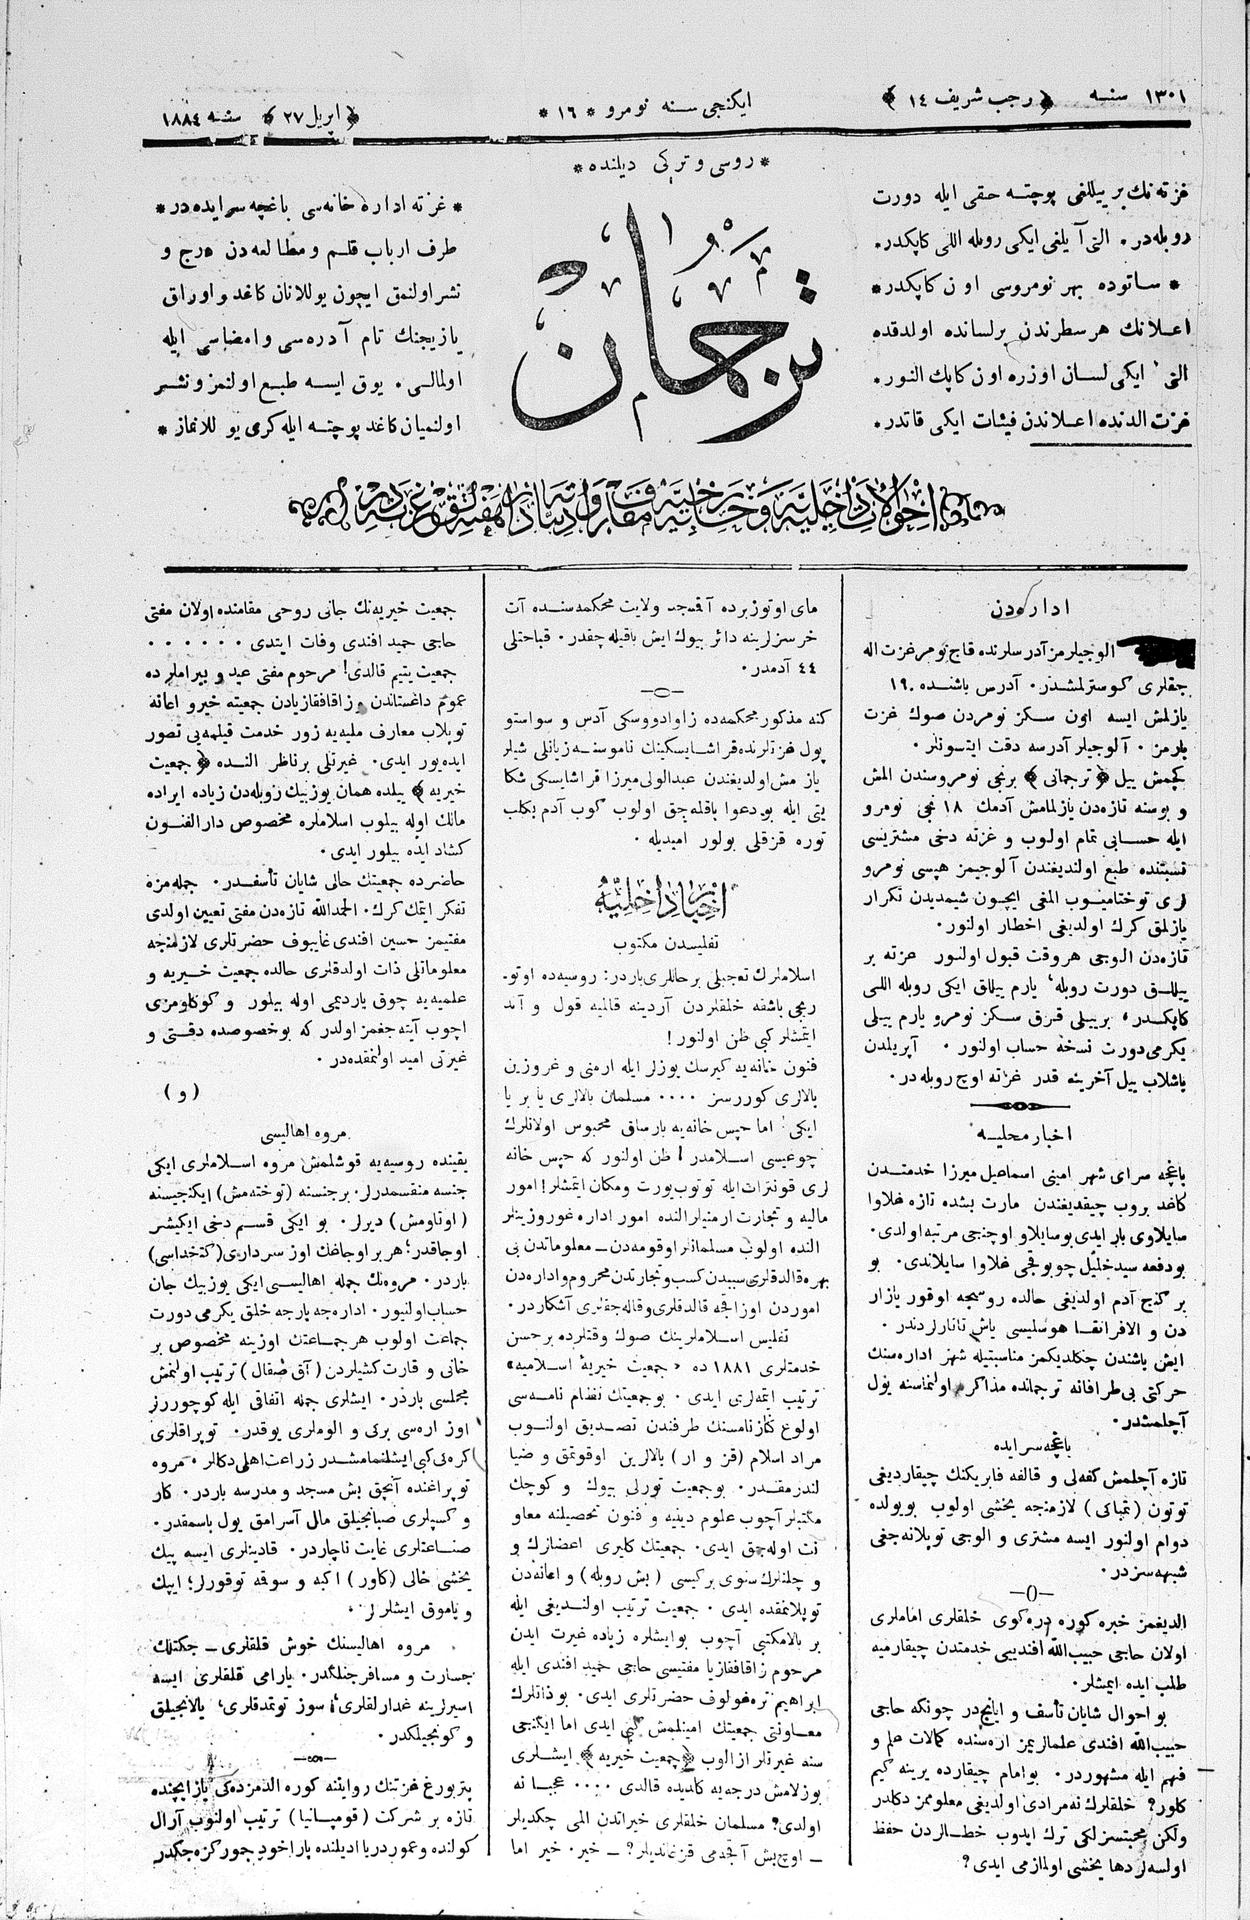 ١٣٠١ سنه ﴿ رجب شريف ١٤ ﴾
ايكنجى سنه نومرو * ١٦ *
﴿ اپريل ٢٧ ﴾ سنه ١٨٨٤
* روسى و تركى ديلنده *
غزته نك بر ييللغى پوچته حقى ايله دورت
روبله در. التى آيلغى ايكى روبله اللى كاپكدر.
* ساتوده بهر نومروسى اون كاپكدر *
اعلانك هر سطرندن بر لسانده اولدقده
التى ايكى لسان اوزره اون كاپك النور.
غزت الدنده اعلاندن فيئات ايكى قاتدر.
ترجمان
* غزته اداره خانه سى باغچه سرايده در *
طرف ارباب قلم و مطالعه دن درج و
نشر اولنمق ايچون يوللانان كاغد و اوراق
يازيجنك تام آدره سى و امضاسى ايله
اولمالى. يوق ايسه طبع اولنمز و نشر
اولنميان كاغد پوچته ايله كرى يوللانماز *
اداره دن
الوجيلرمز آدرسلرنده قاچ نومر غزت اله
جقلرى كوسترلمشدر. آدرس باشنده ١٩٠
يازلمش ايسه اون سكز نومردن صوك غزت
يارمز. آلوجيلر آدرسه دقت ايتسونلر.
كچمش ييل ﴿ ترجمانى ﴾ برنجى نومروسندن المش
و بوسنه تازه دن يازلمامش آدمك ١٨ نجى نومرو
ايله حسابى تمام اولوب و غزته دخى مشتريسى
قسبتنده طبع اولنديغندن آلوجيمز هپسى نومرو
لرى توختاميوب المغى ايچون شيمديدن تكرار
يازلمق كرك اولديغى اخطار اولنور.
تازه دن الوجى هر وقت قبول اولنور غزته بر
ييللق دورت روبله، يارم ييللق ايكى روبله اللى
كاپكدر، بر ييلى قرق سكز نومرو يارم ييلى
يكرمى دورت نسخه حساب اولنور. آپريلدن
باشلاب ييل آخرينه قدر غزته اوچ روبله در.
اخبار محليه
باغچه سراى شهر امينى اسماعيل ميرزا خدمتدن
كاغد بروب چيقديغندن مارت بشده تازه غلاوا
سايلاوى بار ايدى بو سايلاو اوچنجى مرتبه اولدى.
بو دفعه سيد خليل چوبوقچى غلاوا سايلاندى. بو
بر كنج آدم اولديغى حالده روسچه اوقور يازار
دن و الافرانقا هوسليسى ياش تاتارلردندر.
ايش باشندن چكلديكمز مناسبتيله شهر اداره سنك
حركتى بى طرافانه ترجمانده مذاكره اولنماسنه يول
آچلمشدر.
باغچه سرايده
تازه آچلمش كفه لى و قالفه فابريكنك چيقارديغى
توتون (تمباكى) لازمنجه يخشى اولوب بو يولده
دوام اولنور ايسه مشترى و الوجى توپلانه جغى
شبهه سزدر.
الديغمز خبره كوره دره كوى خلقلرى اماملرى
اولان حاجى حبيب الله افندييى خدمتدن چيقارميه
طلب ايده ايمشلر.
بو احوال شايان تأسف و ايانچ در چونكه حاجى
حبيب الله افندى علمالريمز اره سنده كمالات علم و
فهم ايله مشهوردر. بو امام چيقارده يرينه كيم
كلور؟ خلقلرك نه مرادى اولديغى معلوممز دكلدر
ولكن محبتسزلكى ترك ايدوب خطالردن حفظ
اولسه لر دها يخشى اولمازمى ايدى؟
ماى اوتوز برده آقمسجد ولايت محكمه سنده آت
خرسزلرينه دائر بيوك ايش باقيله چقدر. قباحتلى
٤٤ آدمدر.
كنه مذكور محكمه ده زاوادووسكى آدس و سواستو
پول غزتلرنده قراشايسكينك ناموسنه زيانلى شيلر
يازمش اولديغندن عبدالولى ميرزا قراشايسكى شكا
يتى ايله بو دعوا باقله چق اولوب كوب آدم يكلب
توره قزقلى بولور اميديله.
اخبار داخليه
تفليسدن مكتوب
اسلاملرك تعجبلى بر حاللرى باردر: روسيه ده اوتو-
رمجى باشقه خلقلردن آردينه قالميه قول و آند
ايتمشلر كبى ظن اولنور!
فنون خانه يه كيرسك يوزلر ايله ارمنى و غروزين
بالالرى كوررسز .... مسلمان بالالرى يا بر يا
ايكى! اما حپس خانه يه بارساق محبوس اولانلرك
چوغيسى اسلامدر! ظن اولنور كه حپس خانه
لرى قونترات ايله توتوب يورت و مكان ايتمشلر! امور
ماليه و تجارت ارمنيلر النده امور اداره غوروزينلر
النده اولوب مسلمانلر اوقومه دن ـ معلوماتدن بى
بهره قالدقلرى سببدن كسب و تجارتدن محروم و اداره دن
اموردن اوزاقچه قالدقلرى و قاله جقلرى آشكاردر.
تفليس اسلاملرينك صوك وقتلرده بر حسن
خدمتلرى ١٨٨١ ده « جمعيت خيريۀ اسلاميه»
ترتيب ايتمه لرى ايدى. بو جمعيتك نظام نامه سى
اولوغ كنازنامسنك طرفندن تصديق اولنوب
مراد اسلام (قز و ار) بالالرين اوقوتمق و ضيا
لندرمقدر. بو جمعيت تورلى بيوك و كوچك
مكتبلر آچوب علوم دينيه و فنون تحصيلنه معاو
نت اوله چق ايدى. جمعيتك كليرى اعضازك و
و چلنلرك سنوى بركيسى (بش روبله) و اعانه دن
توپلانمقده ايدى. جمعيت ترتيب اولنديغى ايله
بر بالا مكتبى آچوب بو ايشلره زياده غيرت ايدن
مرحوم زاقافقازيا مفتيسى حاجى حميد افندى ايله
ابراهيم تره غولوف حضرتلرى ايدى. بو ذاتلرك
معاونتى جمعيتك امينلمش كبى ايدى اما ايكنجى
سنه غيرتلر ازالوب ﴿جمعيت خيريه﴾ ايشلرى
بوزلامش درجه يه كلديده قالدى .... عجبا نه
اولدى؟ مسلمان خلقلرى خيراتدن المى چكديلر
ـ اوچ بش آلچه مى قزغانديلر؟ ـ خير. خير اما
جمعيت خيريه نك جانى روحى مقامنده اولان مفتى
حاجى حميد افندى وفات ايتدى . . . . . .
جمعيت يتيم قالدى! مرحوم مفتى عيد و بيراملر ده
عموم داغستاندن و زاقافقازيادن جمعيته خير و اعانه
توپلاب معارف مليه يه زور خدمت قيلمه يى تصور
ايده يور ايدى. غيرتلى بر ناظر النده ﴿ جمعيت
خيريه ﴾ ييلده همان يوزبيك روبله دن زياده ايراده
مالك اوله بيلوب اسلاملره مخصوص دارالفنون
كشاد ايده بيلور ايدى.
حاضرده جمعيتك حالى شايان تأسفدر. جمله مزه
تفكر ايتمك كرك. الحمدالله تازه دن مفتى تعيين اولدى
مفتيمز حسين افندى غايبوف حضرتلرى لازمنجه
معلوماتلى ذات اولدقلرى حالده جمعيت خيريه و
علميه يه چوق ياردمى اوله بيلور و كوكلومزى
آچوب آيته جغمز اولدر كه بو خصوصده دقتى و
غيرتى اميد اولنمقده در.
(و)
مروه اهاليسى
يقينده روسيه يه قوشلمش مروه اسلاملرى ايكى
جنسه منقسمدرلر. بر جنسنه (توختەمش) ايكنجيسنه
(اوتاومش) ديرلر. بو ايكى قسم دخى ايكيشر
اوجاقدر؛ هر بر اوجاغك اوز سردارى (كتخداسى)
باردر. مروه نك جمله اهاليسى ايكى يوزبيك جان
حساب اولنيور. اداره جه پارچه خلق يكرمى دورت
جماعت اولوب هر جماعتك اوزينه مخصوص بر
خانى و قارت كشيلردن (آق صقال) ترتيب اولنمش
مجلسى باردر. ايشلرى جمله اتفاقى ايله كوچوررز
اوز اره سى بركى و الوملرى يوقدر. توپراقلرى
كره كى كبى ايشلنمامشدر زراعت اهلى دكللر. مروه
توپراغنده آنجق بش مسجد و مدرسه باردر. كار
و كسپلرى صبانجيلق مال آسرامق يول باسمقدر.
صناعتلرى غايت ناچاردر. قادينلرى ايسه پيك
يخشى خالى (كاور) اكبه و سوقه توقورلر؛ ايپك
و ياموق ايشلرلر.
مروه اهاليسنك خوش قلقلرى ـ جكتلك
جسارت و مسافر جنلكدر. يارامى قلقلرى ايسه
اسيرلرينه غدارلقلرى؛ سوز توتمدقلرى، يالانجيلق
و كونجيلكدر.
پتربورغ غزتنك روايتنه كوره الدمزده كى يازايچنده
تازه بر شركت (قومپانيا) ترتيب اولنوب آرال
كولنده و عمودريا ايدلنده پاراخود جوركزه جكدر